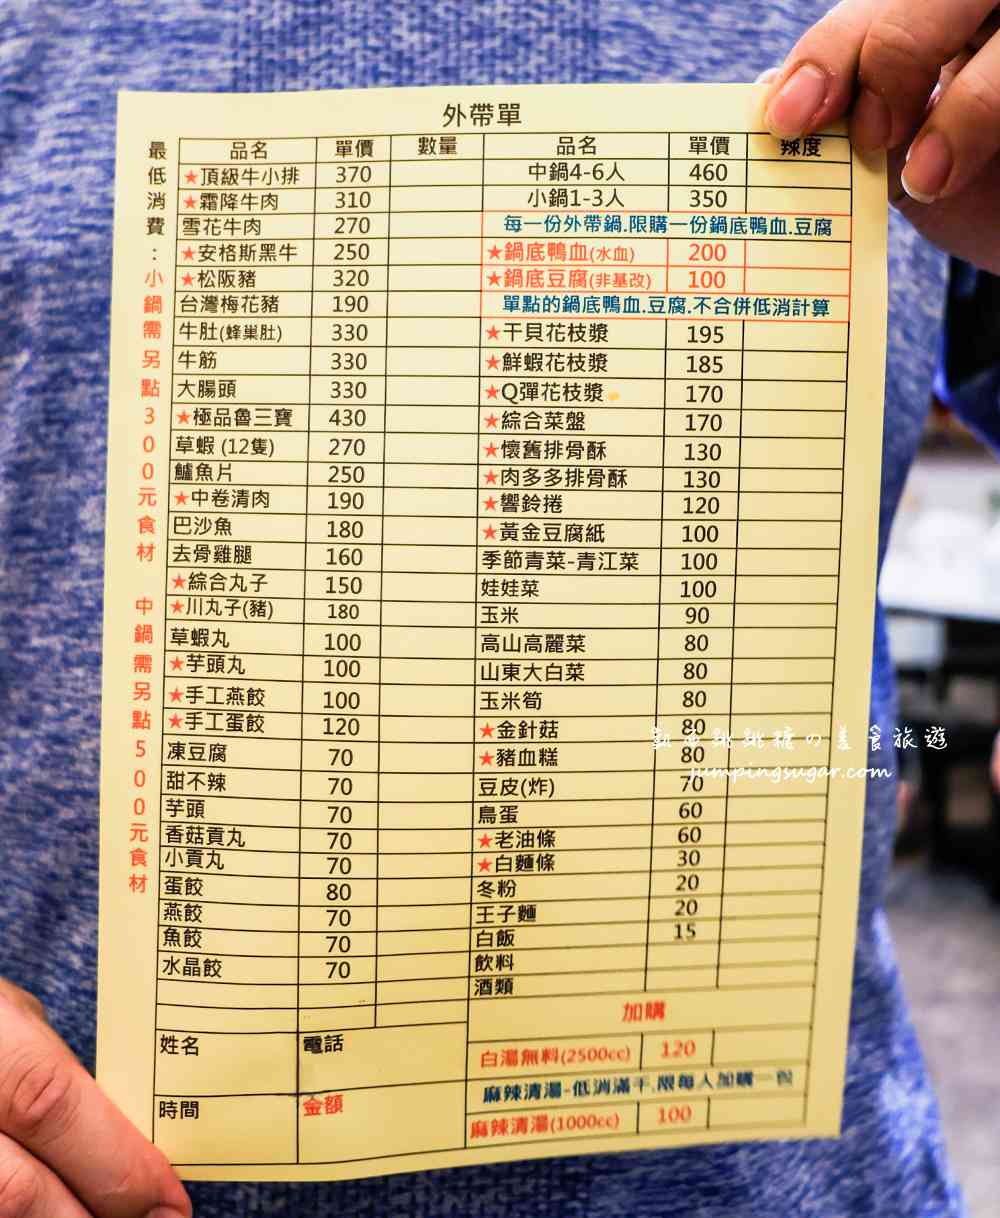 外帶單
最低消費：小鍋需另點300元食材 中鍋需另點500元食材
品名 單價 數量
★頂級牛小排 370
★霜降牛肉 310
雪花牛肉 270
★安格斯黑牛 250
★松阪豬 320
台灣梅花豬 190
牛肚(蜂巢肚) 330
牛筋 330
大腸頭 330
★極品魯三寶 430
草蝦 (12隻) 270
鱸魚片 250
★中卷清肉 190
巴沙魚 180
去骨雞腿 160
★綜合丸子 150
★川丸子(豬) 180
草蝦丸 100
★芋頭丸 100
★手工燕餃 100
★手工蛋餃 120
凍豆腐 70
甜不辣 70
芋頭 70
香菇貢丸 70
小貢丸 70
蛋餃 80
燕餃 70
魚餃 70
水晶餃 70
姓名 電話
時間 金額
品名 單價 辣度
中鍋4-6人 460
小鍋1-3人 350
每一份外帶鍋.限購一份鍋底鴨血.豆腐
★鍋底鴨血(水血) 200
★鍋底豆腐(非基改) 100
單點的鍋底鴨血.豆腐.不合併低消計算
★干貝花枝漿 195
★鮮蝦花枝漿 185
★Q彈花枝漿 170
★綜合菜盤 170
★懷舊排骨酥 130
★肉多多排骨酥 130
★響鈴捲 120
★黃金豆腐紙 100
季節青菜-青江菜 100
娃娃菜 100
玉米 90
高山高麗菜 80
山東大白菜 80
玉米筍 80
★金針菇 80
★豬血糕 80
豆皮(炸) 70
鳥蛋 60
★老油條 60
★白麵條 30
冬粉 20
王子麵 20
白飯 15
飲料
酒類
加購
白湯無料(2500cc) 120
麻辣清湯-低消滿千.限每人加購一份
麻辣清湯(1000cc) 100
跳跳糖の美食旅遊
jumpingsugar.com